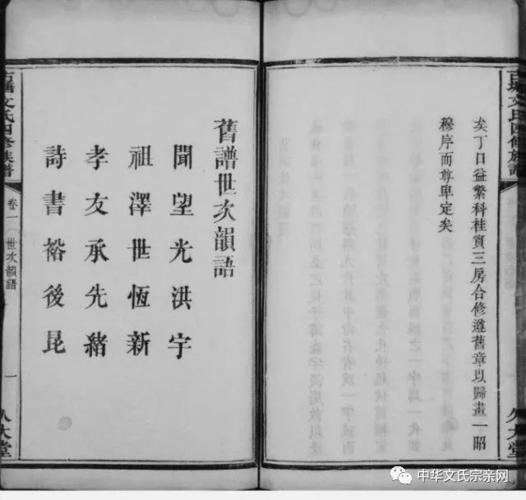 矣丁口益繁科桂賓三房合修遵舊章以歸畫一昭
穆序而尊卑定矣
久大堂
舊譜世次韻語
聞望光洪宇
祖澤世恆新
孝友承先緒
詩書裕後昆
文氏四修族譜
卷一
世次韻語
一
久大堂
中华文氏宗亲网